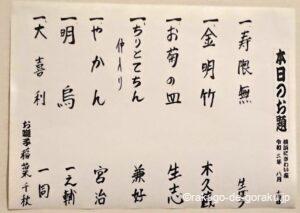 本日のお題
横浜にぎわい座
令和二年 八月
一 寿限無
一 金明竹 木久蔵
一 お菊の皿 生志
一 ちりとてちん 兼好
仲入り
一 やかん 宮治
一 明烏 一之輔
一 大喜利 一同
お囃子 稲葉千秋
©rakago-de-goraku.jp